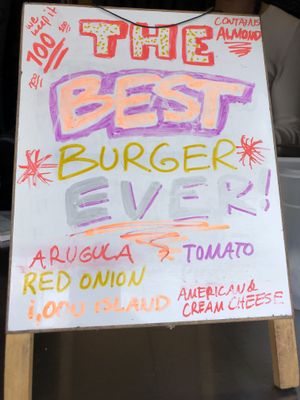 we keep it
100
THE
CONTAINS
ALMOND
BEST
BURGER
EVER!
ARUGULA
TOMATO
RED ONION
1,000 ISLAND
AMERICAN &
CREAM CHEESE